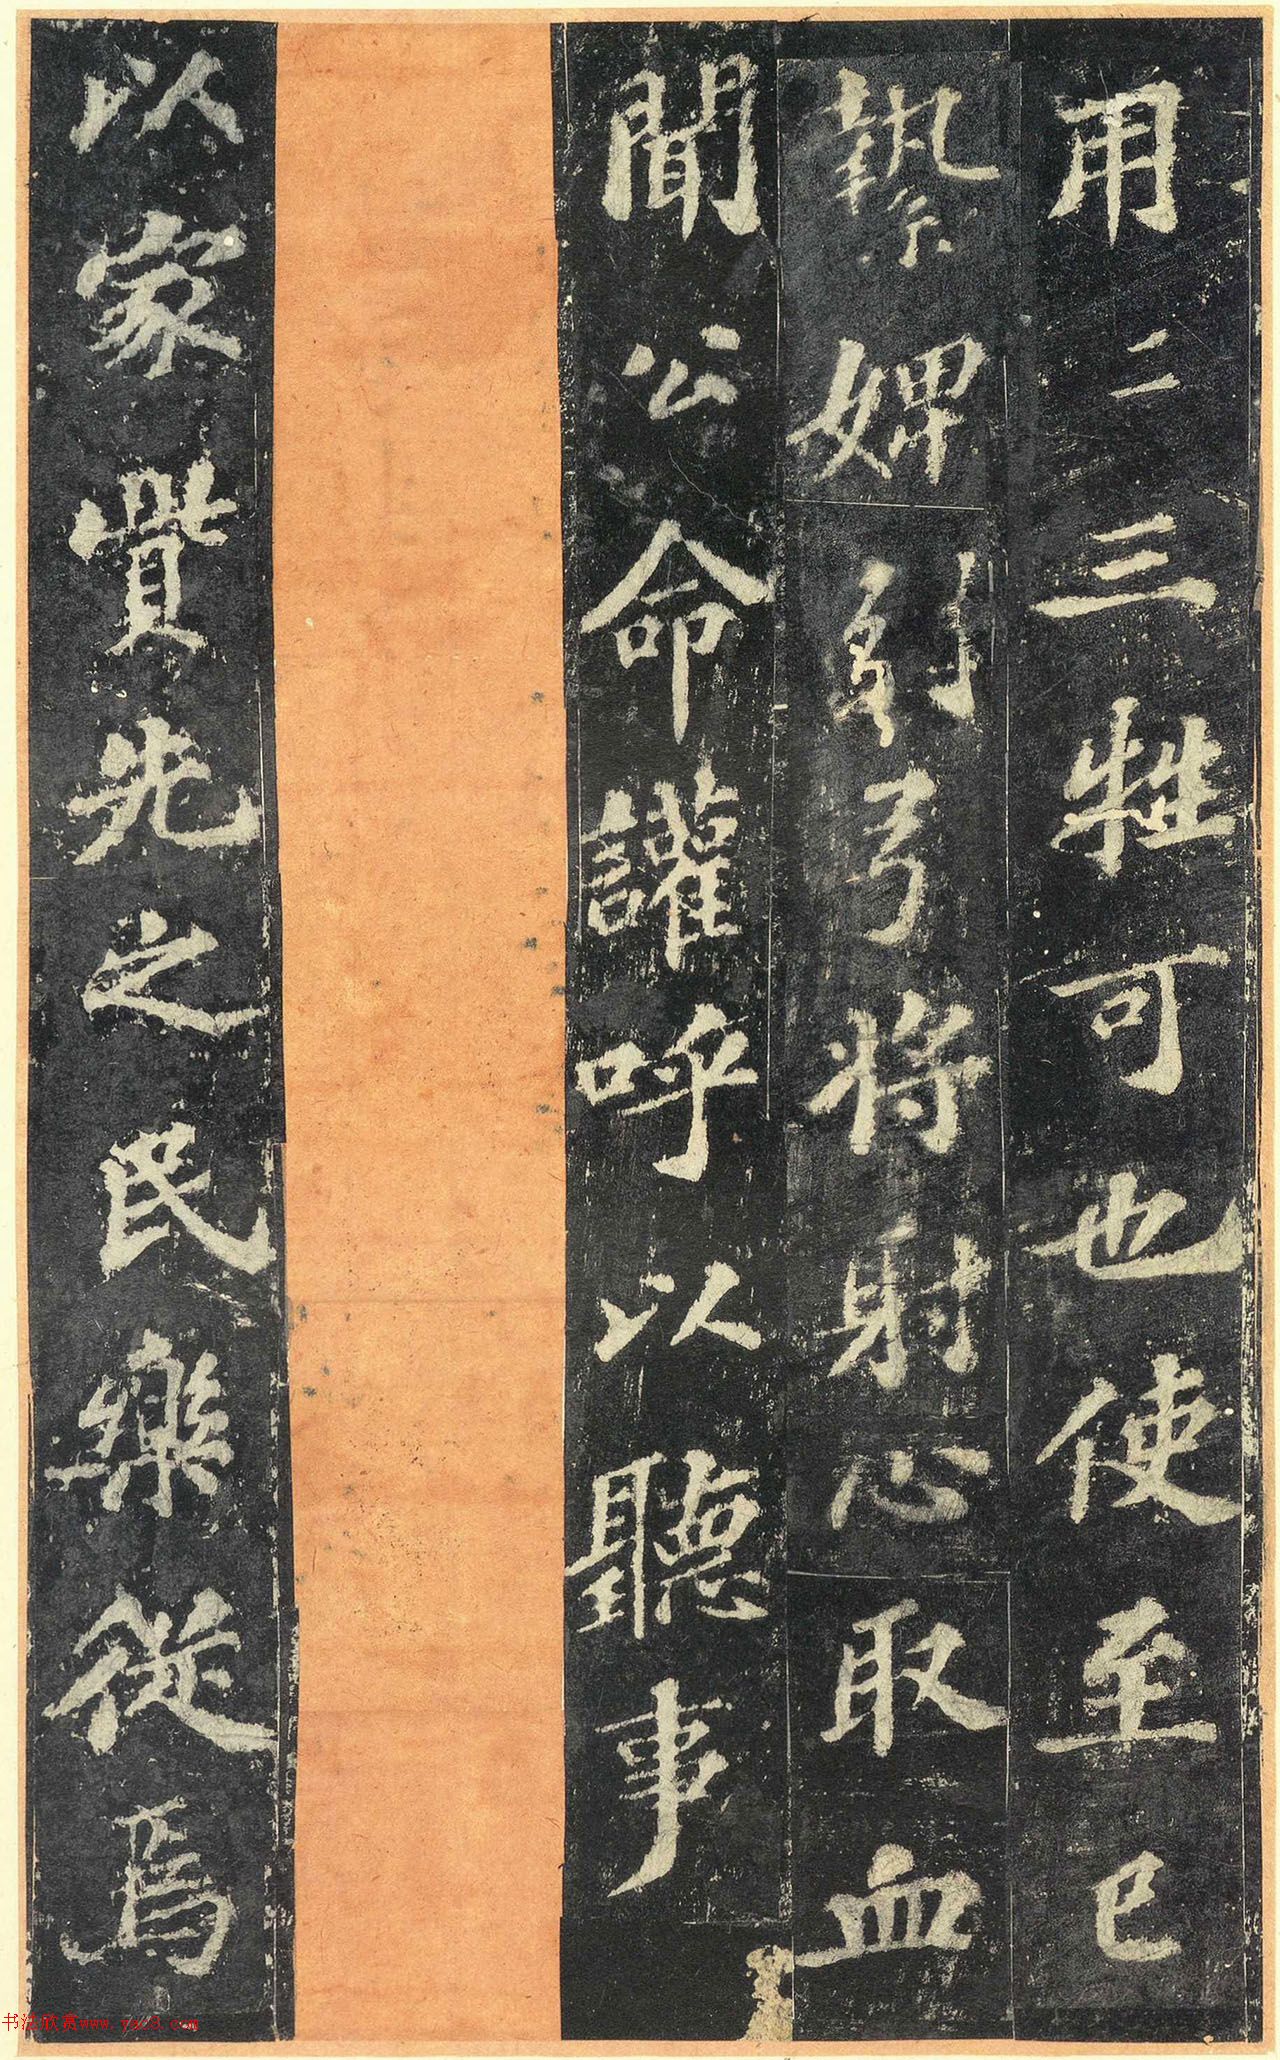 用二三牲可也使至已
縶婢弓將射心取血
聞公命讙呼以聽事
以家貲先之民樂從焉
书法欣赏www.yac8.com